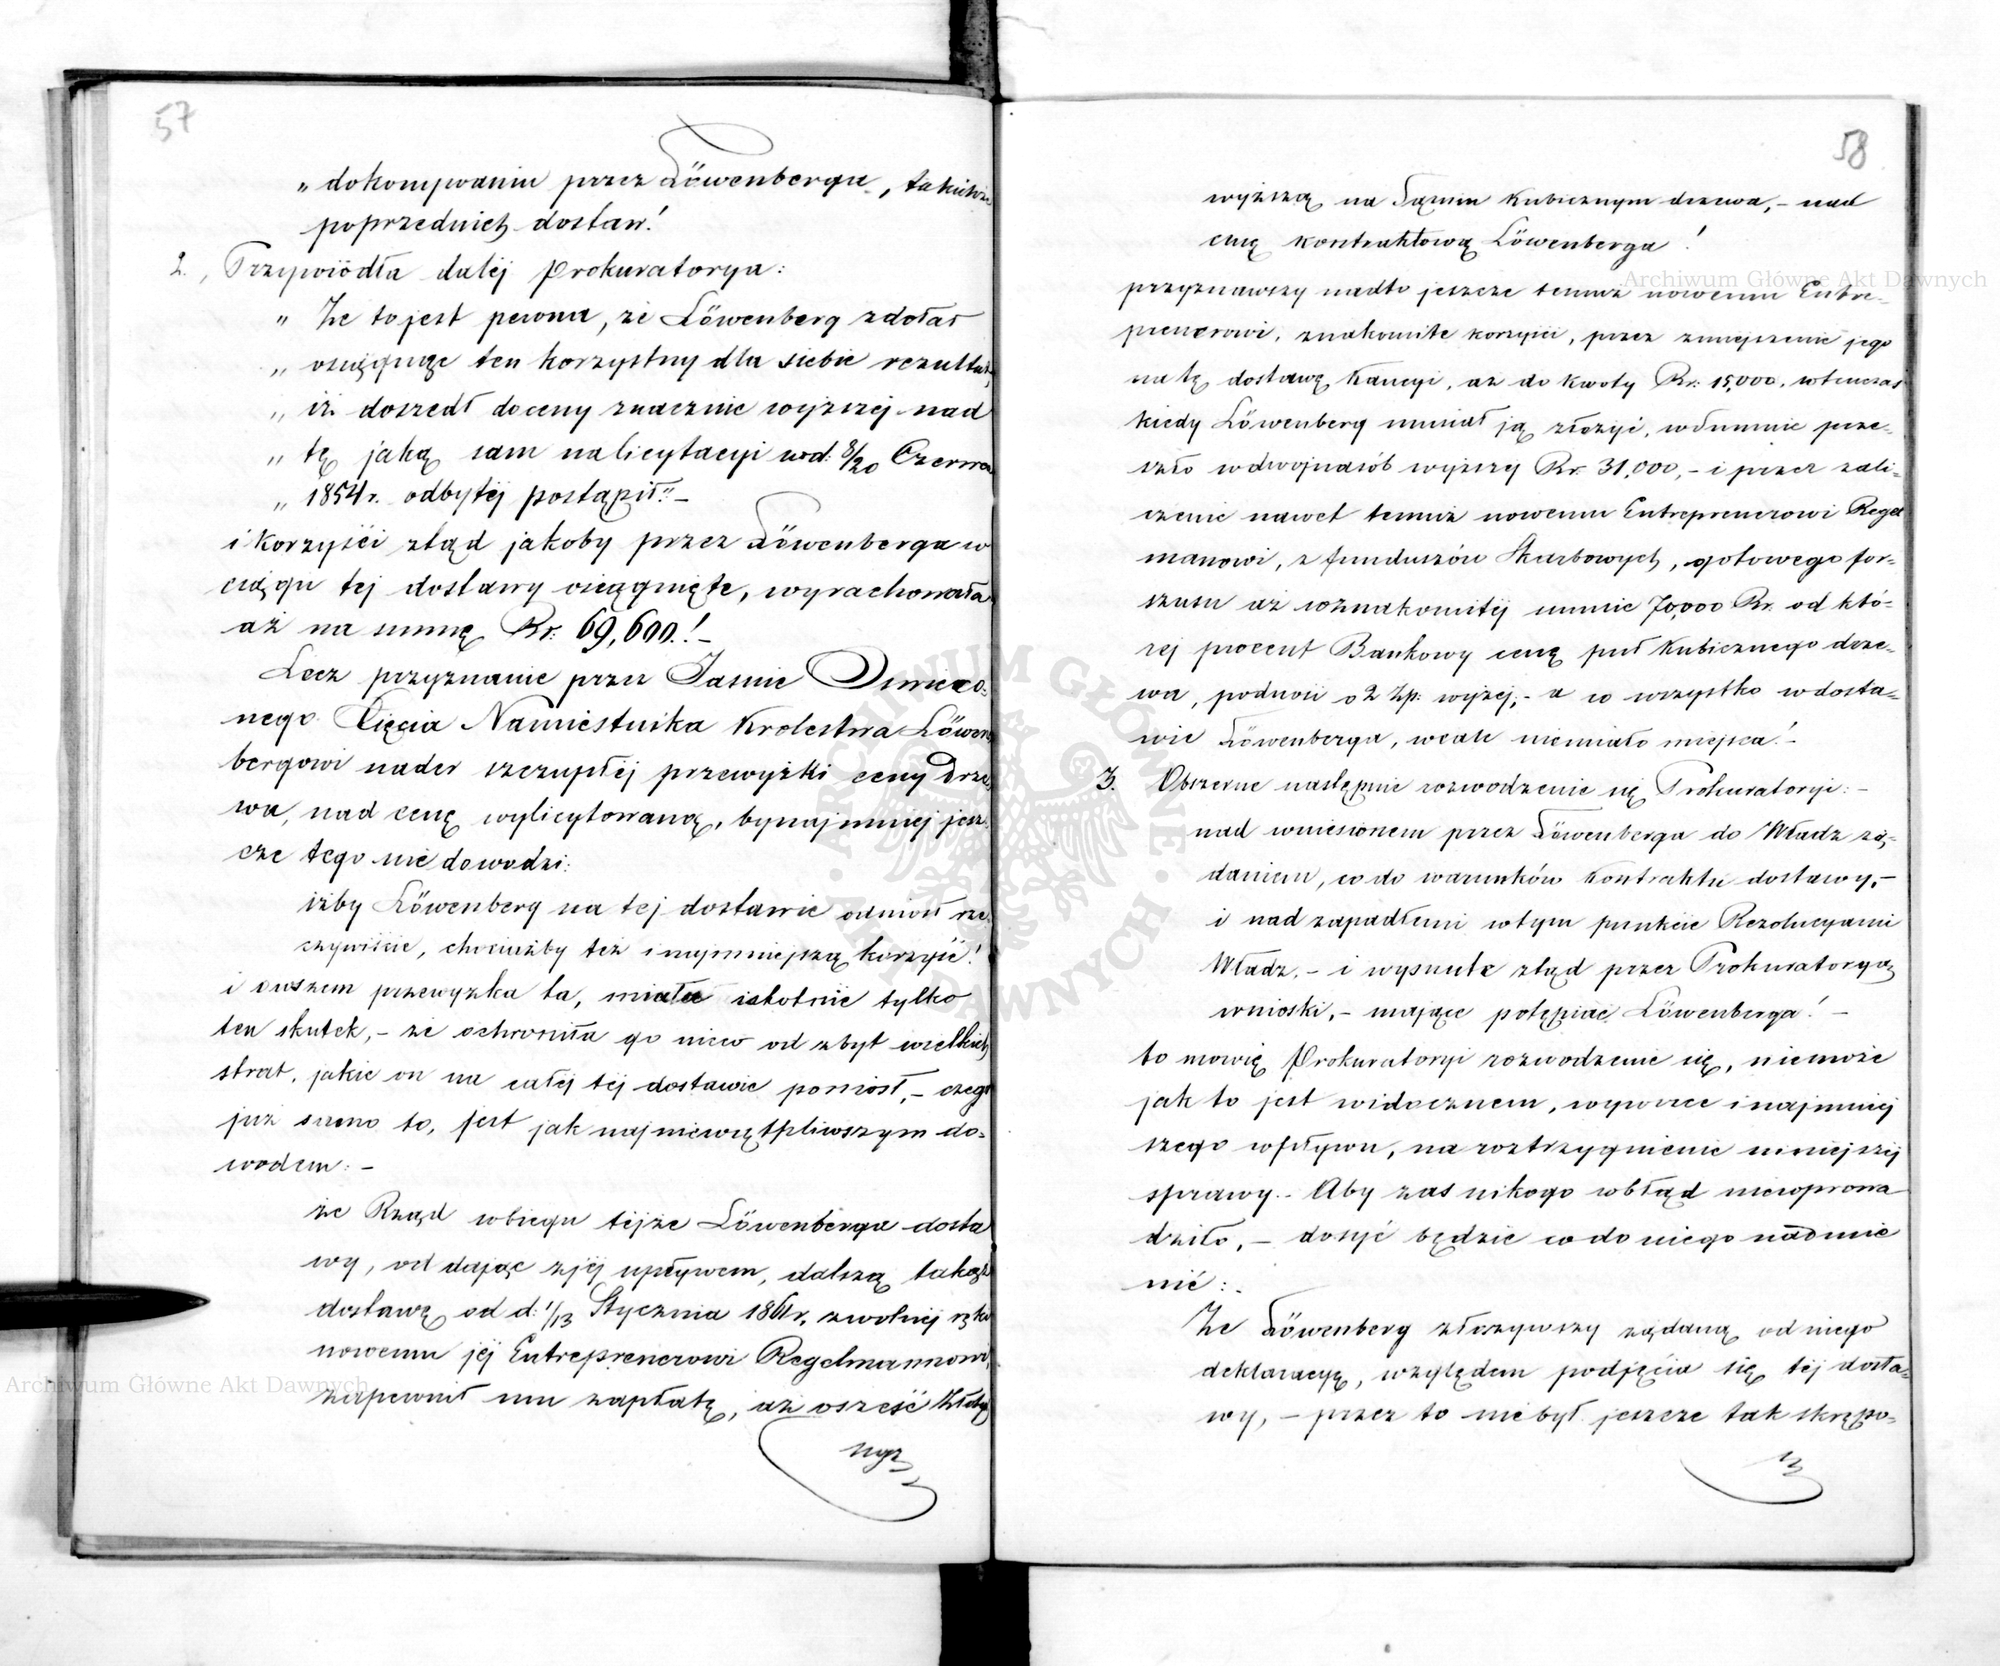 57
„ dokonywaniu przez Löwenberga, takichże
poprzednich dostaw!
2., Przywiódła daléj Prokuratorya:
„ Że to jest pewna, że Löwenberg zdołał
„ osiągnąć ten korzystny dla siebie rezultat,
„ iż doszedł do ceny znacznie wyższej nad
„ tę jaką sam na licytacyi w d: 8/20 Czerwca
„ 1854 r. odbytéj postąpił." –
i korzyści ztąd jakoby przez Löwenberga w
ciągu tej dostawy osiągnięte, wyrachowała
aż na summę Rs: 69,600.! –
Lecz przyznanie przez Jaśnie Oświeco-
nego Xięcia Namiestnika Królestwa Löwen
bergowi nader szczupłéj przewyżki ceny Drze
wa, nad cenę wylicytowaną, bynajmniej jesz
cze tego nie dowodzi:
iżby Löwenberg na tej dostawie odniósł rze
czywiście, chociażby też i najmniejszą korzyść!
i owszem przewyżka ta, miała istotnie tylko
ten skutek, – że ochroniła go nieco od zbyt wielkich
strat, jakie on na całéj téj dostawie poniósł, – czego
już samo to, jest jak najniewątpliwszym do-
wodem: –
że Rząd w biegu téjże Löwenberga dosta
wy, oddając z jéj upływem, dalszą takąż
dostawę od d: 1/13 Stycznia 1861 r. z wolnéj ręki
nowemu jéj Entreprenerowi Regelmannowi,
zapewnił mu zapłatę, aż o sześć Złotych
wyż
58
wyższą na Sążniu Kubicznym drzewa, – nad
cenę kontraktową Löwenberga!
przyznawszy nadto jeszcze temuż nowemu Entre-
prenerowi, znakomite korzyści, przez zmniejszenie jego
na tę dostawę Kaucyi, aż do kwoty Rs: 15,000, wtenczas
kiedy Löwenberg musiał ją złożyć, w summie prze-
szło w dwójnasób wyższéj Rs. 31,000, – i przez zali-
czenie nawet temuż nowemu Entreprenerowi Regel
manowi, z funduszów Skarbowych, gotowego for-
szusu aż w znakomitéj summie 70,000 Rs. od któ-
rej procent Bankowy cenę pół Kubicznego drze-
wa, podnosi o 2 Zp: wyżej; – a co wszystko w dosta-
wie Löwenberga, wcale niemiało miejsca! –
3. Obszerne następnie rozwodzenie się Prokuratoryi: –
nad wniesionem przez Löwenberga do Władz żą-
daniem, co do warunków Kontraktu dostawy, –
i nad zapadłemi w tym punkcie Rezolucyami
Władz, – i wysnute ztąd przez Prokuratoryą
wnioski, – mające potępiać Löwenberga! –
to mówię Prokuratoryi rozwodzenie się, niemoże
jak to jest widocznem, wywrzeć i najmniej
szego wpływu, na roztrzygnienie niniejszéj
sprawy. – Aby zaś nikogo w błąd niewprowa
dziło, – dosyć będzie co do niego nadmie
nić: –
Że Löwenberg złożywszy żądaną od niego
deklaracyę, względem podjęcia się téj dosta-
wy, – przez to nie był jeszcze tak skrępo-
Archiwum Główne Akt Dawnych
Archiwum Główne Akt Dawnych
ARCHIWUM GŁÓWNE AKT DAWNYCH